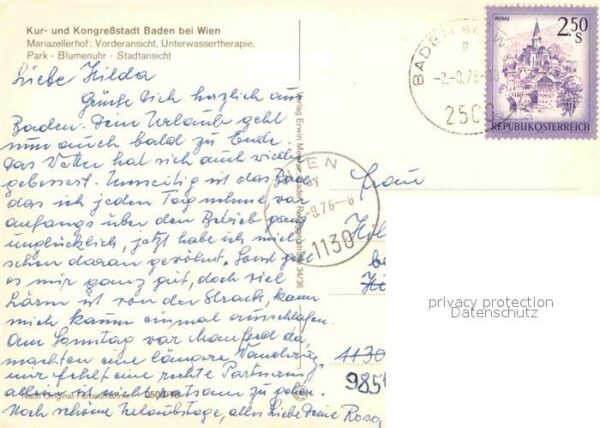 Kur- und Kongreßstadt Baden bei Wien
Mariazellerhof: Vorderansicht, Unterwassertherapie,
Park - Blumenuhr - Stadtansicht
Liebe Hilda
Grüße Dich herzlich aus
Baden. Dein Urlaub geht
nun auch bald zu Ende,
das Wetter hat sich auch wieder
gebessert. ist das Bad
das ich jeden Tag nehme, war
anfangs über den Betrieb ganz
unglücklich, jetzt habe ich mich
schon daran gewöhnt. Sonst
es mir ganz gut, doch viel
Lärm ist von der Straße, kann
mich kaum einmal ausschlafen.
Am Sonntag war Manfred da,
machten eine längere Wanderung,
mir fehlt eine rechte Partnerin
allein ist nicht ratsam zu gehen.
Noch schöne Urlaubstage, alles Liebe Deine Rosa
Verlag Erwin
34/36
BADEN
P
2500
WIEN
1130
MURAU
2.50
S
REPUBLIK ÖSTERREICH
Frau
1130
985
privacy protection
Datenschutz